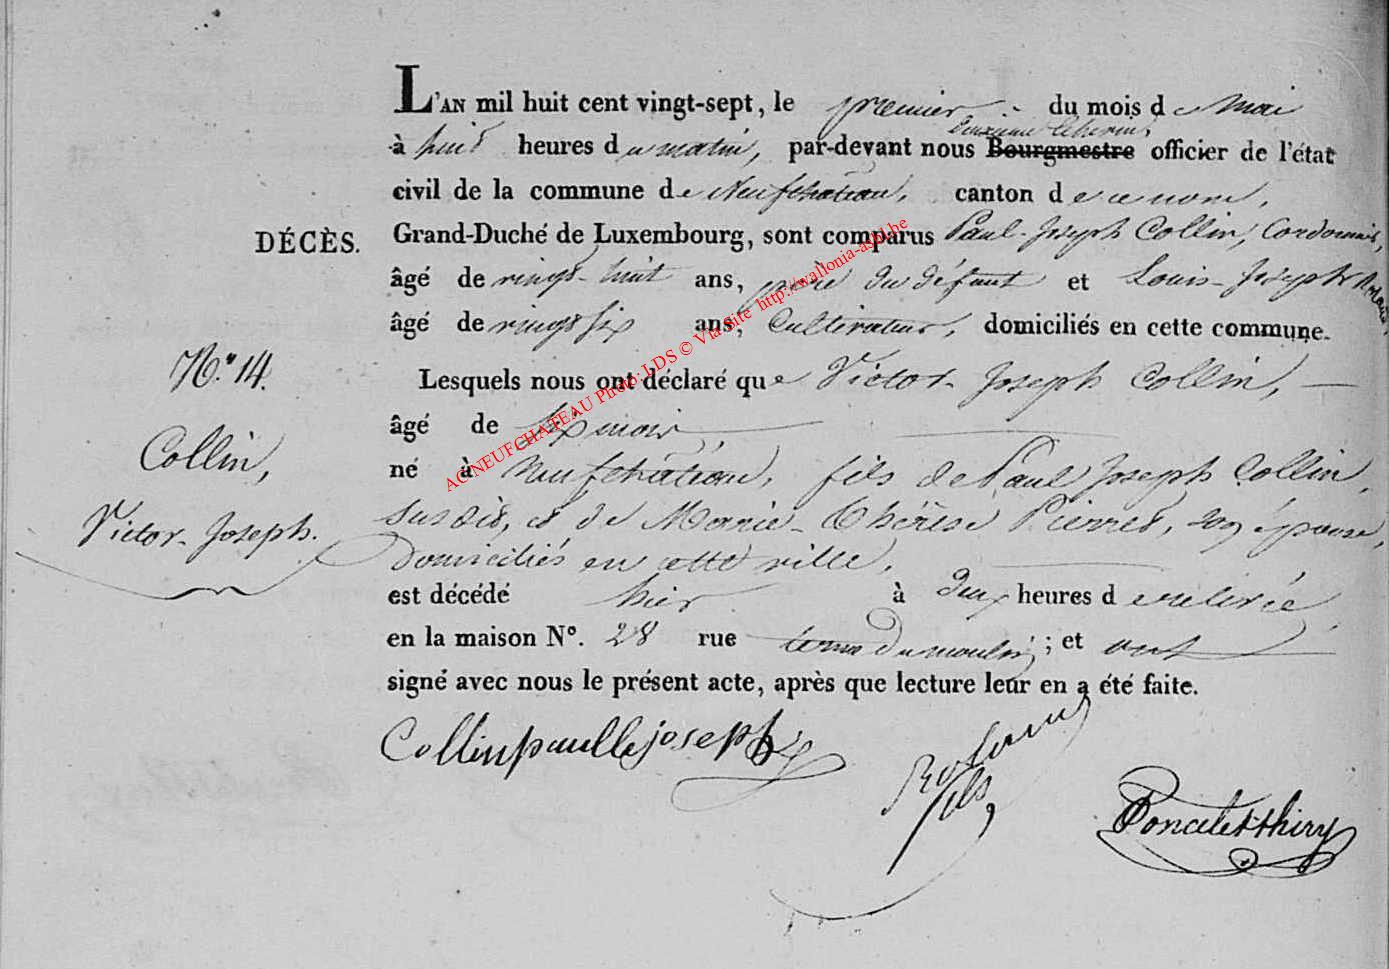 L'AN mil huit cent vingt-sept, le premier du mois de Mai
deuxième Echevin,
à huit heures du matin, par-devant nous Bourgmestre officier de l'état
civil de la commune de Neufchâteau, canton de ce nom,
DÉCÈS.
Grand-Duché de Luxembourg, sont comparus Paul-Joseph Collin, Cordonnier,
âgé de vingt-huit ans, père du défunt et Louis-Joseph
âgé de vingt six ans, Cultivateur, domiciliés en cette commune.
N.° 14.
Lesquels nous ont déclaré que Victor-Joseph Collin,
âgé de six mois,
Collin,
né à Neufchâteau, fils de Paul Joseph Collin,
Victor-Joseph.
susdit, et de Marie-Thérèse Pierret, son épouse,
Domiciliés en cette ville,
est décédé hier à deux heures de relevée,
en la maison N°. 28 rue terme Du moulin; et ont
signé avec nous le présent acte, après que lecture leur en a été faite.
Collin paulle joseph
fils
Poncelet thiry
AC NEUFCHATEAU Photo: LDS © Via Site http://wallonia-asbl.be